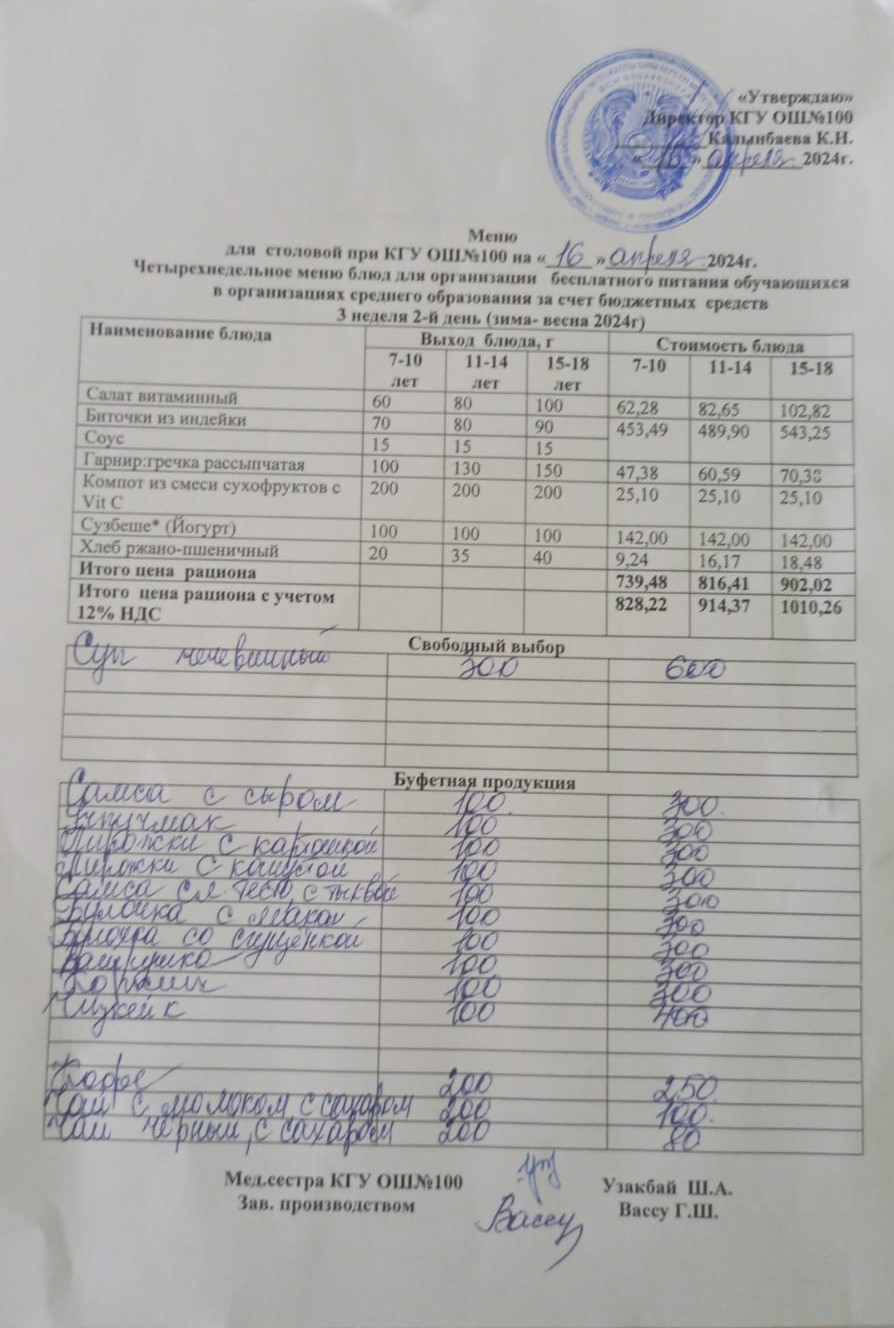 «Утверждаю»
Директор КГУ ОШ№100
Калынбаева К.Н.
«16» апреля 2024г.
Меню
для столовой при КГУ ОШ№100 на « 16 » апреля 2024г.
Четырехнедельное меню блюд для организации бесплатного питания обучающихся
в организациях среднего образования за счет бюджетных средств
3 неделя 2-й день (зима- весна 2024г)
Наименование блюда Выход блюда, г Стоимость блюда
7-10 лет 11-14 лет 15-18 лет 7-10 11-14 15-18
Салат витаминный 60 80 100 62,28 82,65 102,82
Биточки из индейки 70 80 90 453,49 489,90 543,25
Соус 15 15 15
Гарнир:гречка рассыпчатая 100 130 150 47,38 60,59 70,38
Компот из смеси сухофруктов с 200 200 200 25,10 25,10 25,10
Vit C
Сузбеше* (Йогурт) 100 100 100 142,00 142,00 142,00
Хлеб ржано-пшеничный 20 35 40 9,24 16,17 18,48
Итого цена рациона 739,48 816,41 902,02
Итого цена рациона с учетом 828,22 914,37 1010,26
12% НДС
Свободный выбор
Суп чечевичный 300 600
Буфетная продукция
Самса с сыром 100 300
Учпучмак 100 300
Пирожки с картошкой 100 300
Пирожки с капустой 100 300
Самса сл. тесто с тыквой 100 300
Булочка с маком 100 300
Булочка со сгущенкой 100 300
100 300
100 300
Чизкейк 100 400
Кофе 200 250
Чай с молоком, с сахаром 200 100
Чай черный, с сахаром 200 80
Мед.сестра КГУ ОШ№100 Узакбай Ш.А.
Зав. производством Вассу Вассу Г.Ш.